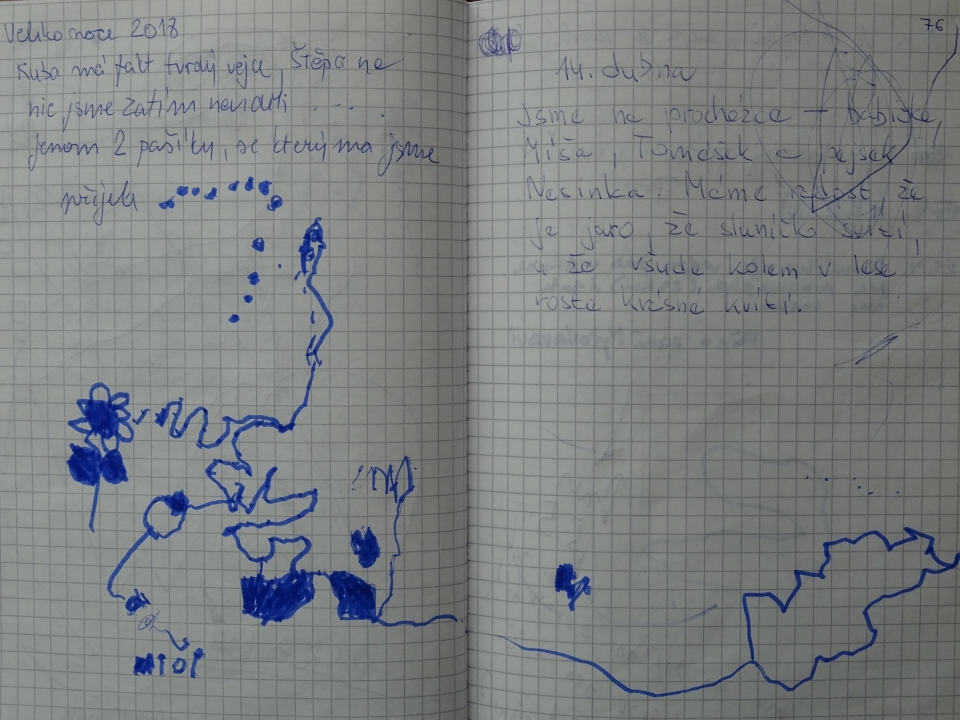 Velikonoce 2018
Kuba má fakt tvrdý vejce, Štěpa na
nic jsme zatím nenašli ....
jenom 2 pašíky, se který ma jsme
přijela
76
14. dubna
Jsme na procházce + babička,
Míša, Tomášek a pejsek
Nesinka. Máme radost, že
je jaro, že sluníčko svítí,
a že všude kolem v lese
roste krásné kvítí.